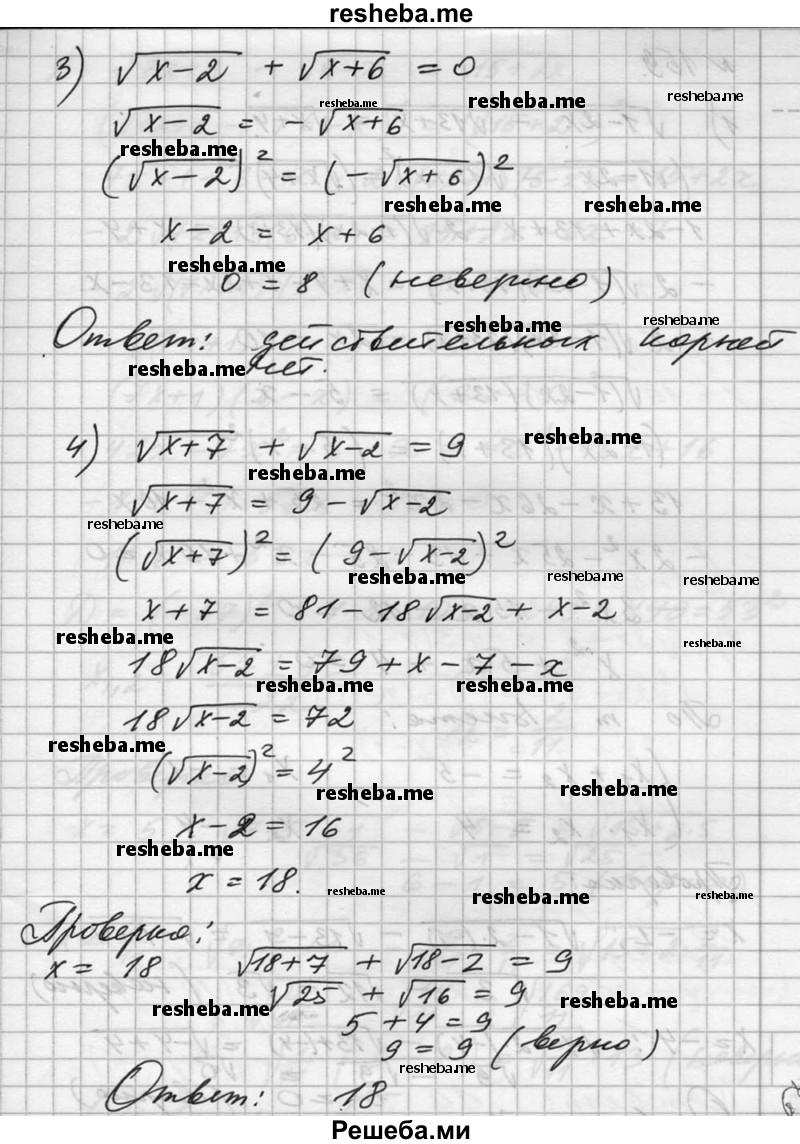 resheba.me
3) √(x-2) + √(x+6) = 0
resheba.me resheba.me resheba.me
√(x-2) = -√(x+6)
resheba.me
(√(x-2))² = (-√(x+6))²
resheba.me resheba.me
x-2 = x+6
resheba.me
0 = 8 (неверно)
resheba.me resheba.me
Ответ: действительных корней
resheba.me нет.
4) √(x+7) + √(x-2) = 9
resheba.me
resheba.me
√(x+7) = 9 - √(x-2)
resheba.me
(√(x+7))² = (9-√(x-2))²
resheba.me resheba.me resheba.me
x+7 = 81-18√(x-2) + x-2
resheba.me resheba.me
18√(x-2) = 79+x-7-x
resheba.me resheba.me
18√(x-2) = 72
resheba.me
(√(x-2))² = 4²
resheba.me resheba.me
x-2 = 16
resheba.me
x = 18.
resheba.me resheba.me resheba.me
Проверка:
x = 18 √(18+7) + √(18-2) = 9
√25 + √16 = 9
resheba.me resheba.me
5+4 = 9
9 = 9 (верно)
resheba.me
Ответ: 18
Решеба.ми